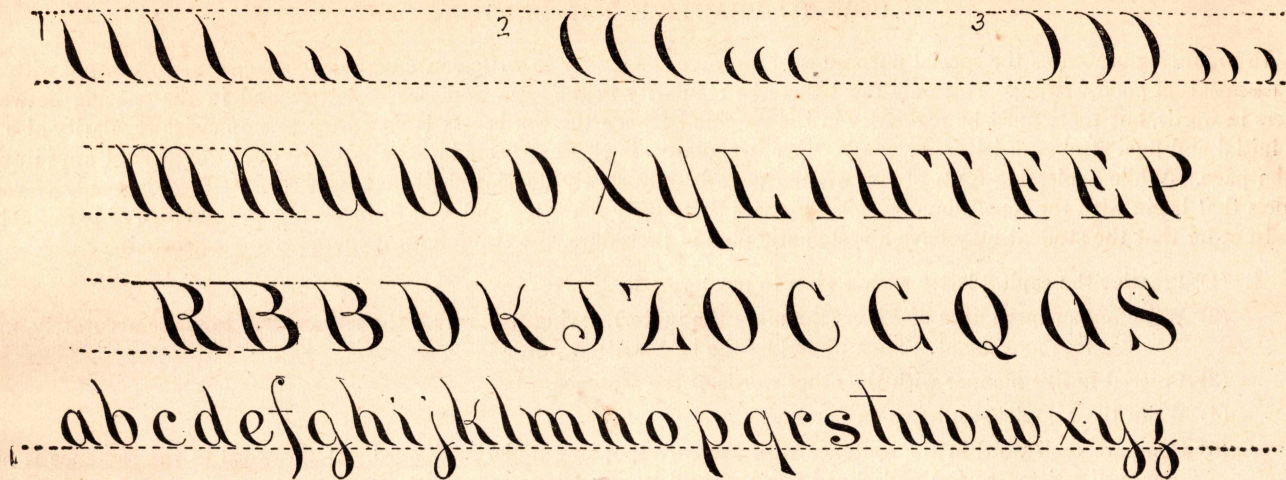 1 2 3
M N U W V X Y L I H T F E P
R B B D K J Z O C G Q A S
a b c d e f g h i j k l m n o p q r s t u v w x y z